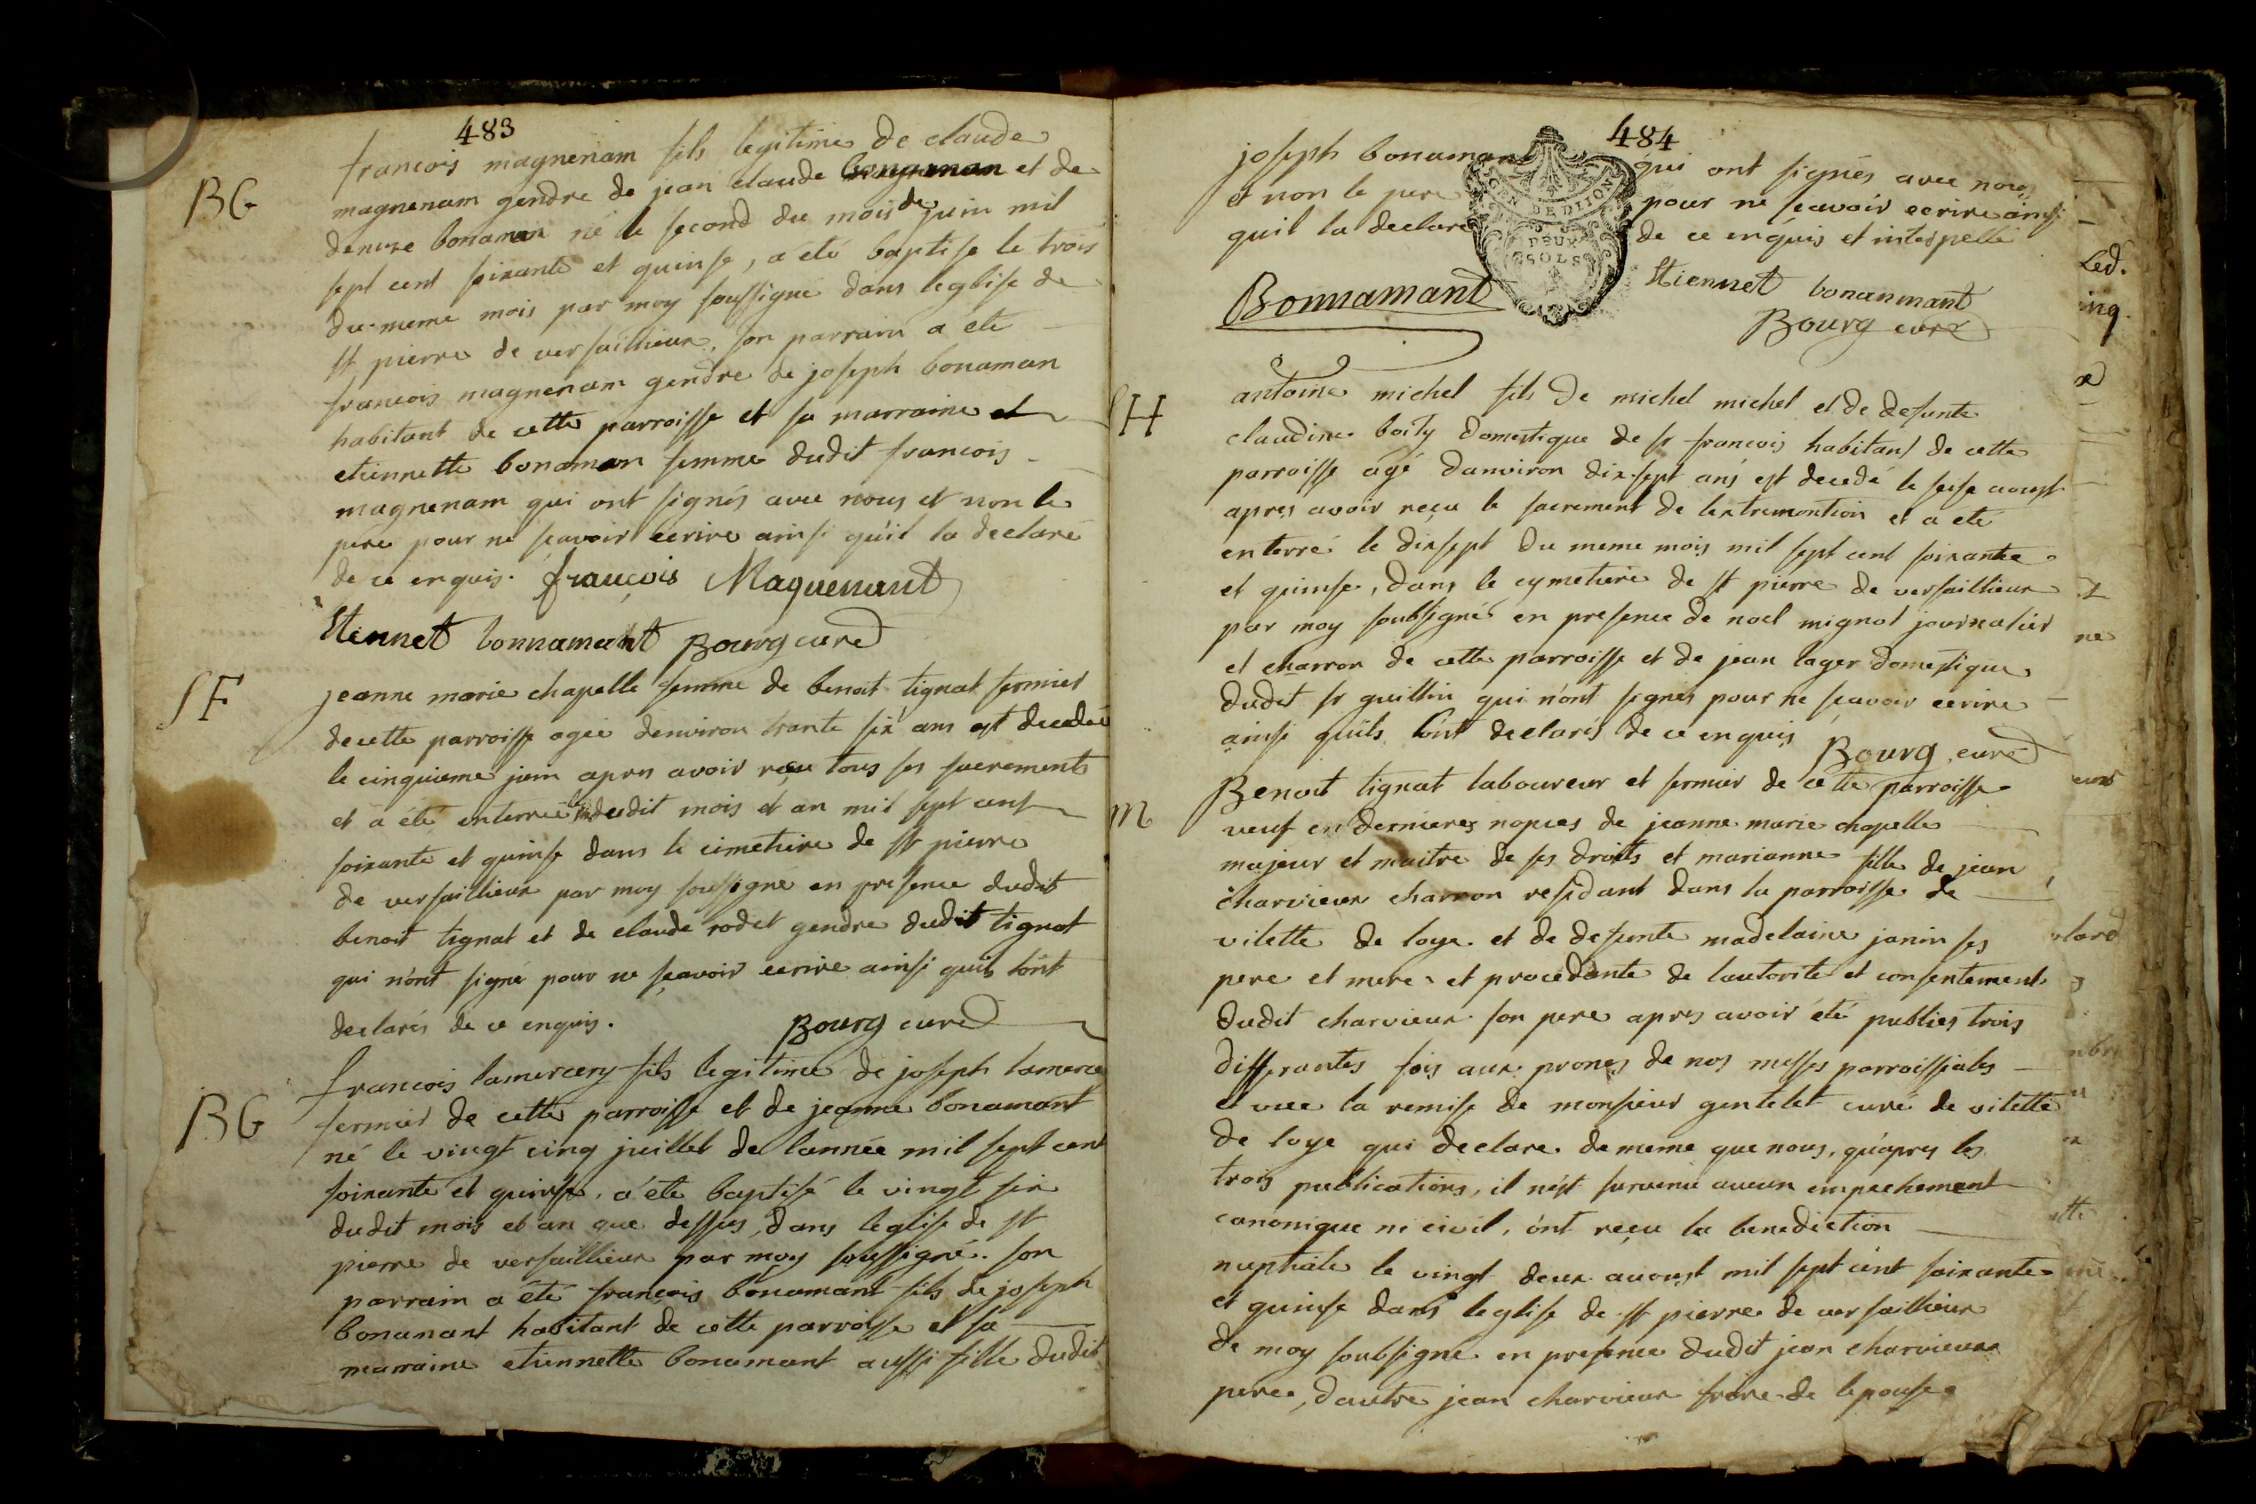 483
BG
francois magnenam fils legitime de claude
magnenam gendre de jean claude et de
bonaman né le second du mois de juin mil
sept cent soixante et quinse, a été baptise le trois
du meme mois par moy soussigne dans leglise de
st pierre de versaillieux, son parrain a ete
francois magnenam gendre de joseph bonaman
habitant de cette parroisse et sa marraine et
etiennette bonaman femme dudit francois
magnenam qui ont signés avec nous et non le
pere pour ne scavoir ecrire ainsi qu'il la declaré
de ce enquis. françois Maquenant
Etiennet bonnamant Bourg curé
SF
jeanne marie chapelle femme de benoit tignat fermier
de cette parroisse agée denviron trante six ans est decedée
le cinquieme juin apres avoir reçu tous ses sacrements
et a été enterrée dudit mois et an mil sept cent
soixante et quinse dans le cimetiere de st pierre
de versaillieux par moy sousigne en presence dudit
benoit tignat et de claude rodet gendre dudit tignat
qui n'ont signé pour ne sçavoir ecrire ainsi quils lont
declarés de ce enquis.
Bourg curé
BG
francois lamercery fils legitime de joseph lamerce
fermier de cette parroisse et de jeanne bonamant
né le vingt cinq juillet de lannée mil sept cent
soixante et quinse, a été baptisé le vingt six
dudit mois et an que dessus, dans leglise de st
pierre de versaillieux par moy soussigné. son
parrain a été françois bonamant fils de joseph
bonamant habitant de cette parroisse et sa
marraine etiennette bonamant aussi fille dudit
484
joseph bonamant qui ont signés avec nous
et non le pere pour ne sçavoir ecrire ainsi
quil la declare de ce enquis et interpellé
GEN DE DIJON
DEUX
SOLS
Bonnamant
Etiennet bonanmant
Bourg curé
SH
antoine michel fils de michel michel et de defunte
claudine boity domestique de sr francois habitant de cette
parroisse agé danviron dix sept ans est decedé le seise aoust
apres avoir reçu le sacrement de lextremontion et a ete
enterré le dixsept du meme mois mil sept cent soixante
et quinse, dans le cymetiere de st pierre de versaillieux
par moy soubsigné en presence de noel mignot journalier
et charron de cette parroisse et de jean lager domestique
dudit sr guillin qui n'ont signés pour ne sçavoir ecrire
ainsi quils lont declarés de ce enquis
Bourg, curé
M
Benoit tignat laboureur et fermier de cette parroisse
veuf en dernieres nopces de jeanne marie chapelle
majeur et maitre de ses droits et marianne fille de jean
charvieux charron residant dans la parroisse de
vilette de loye et de defunte madelaine janin ses
pere et mere et procedante de lautorité et consentement
dudit charvieux son pere apres avoir été publies trois
differantes fois aux prones de nos messes parroissiales
et vue la remise de monsieur gentelet curé de vilette
de loye qui declare de meme que nous, qu'apres les
trois publications, il n'est survenu aucun empechement
canonique ni civil, ont reçu la benediction
nuptiale le vingt deux aoust mil sept cent soixante
et quinse dans leglise de st pierre de versaillieux
de moy soubsigné en presence dudit jean charvieux
pere, dautre jean charvieux frere de lepouse